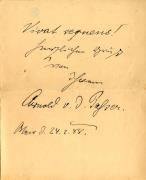 Vivat sequens!
herzlichen Gruß
von
Ihrem
Arnold v. d. Passer.
Meran d. 24.2.88.